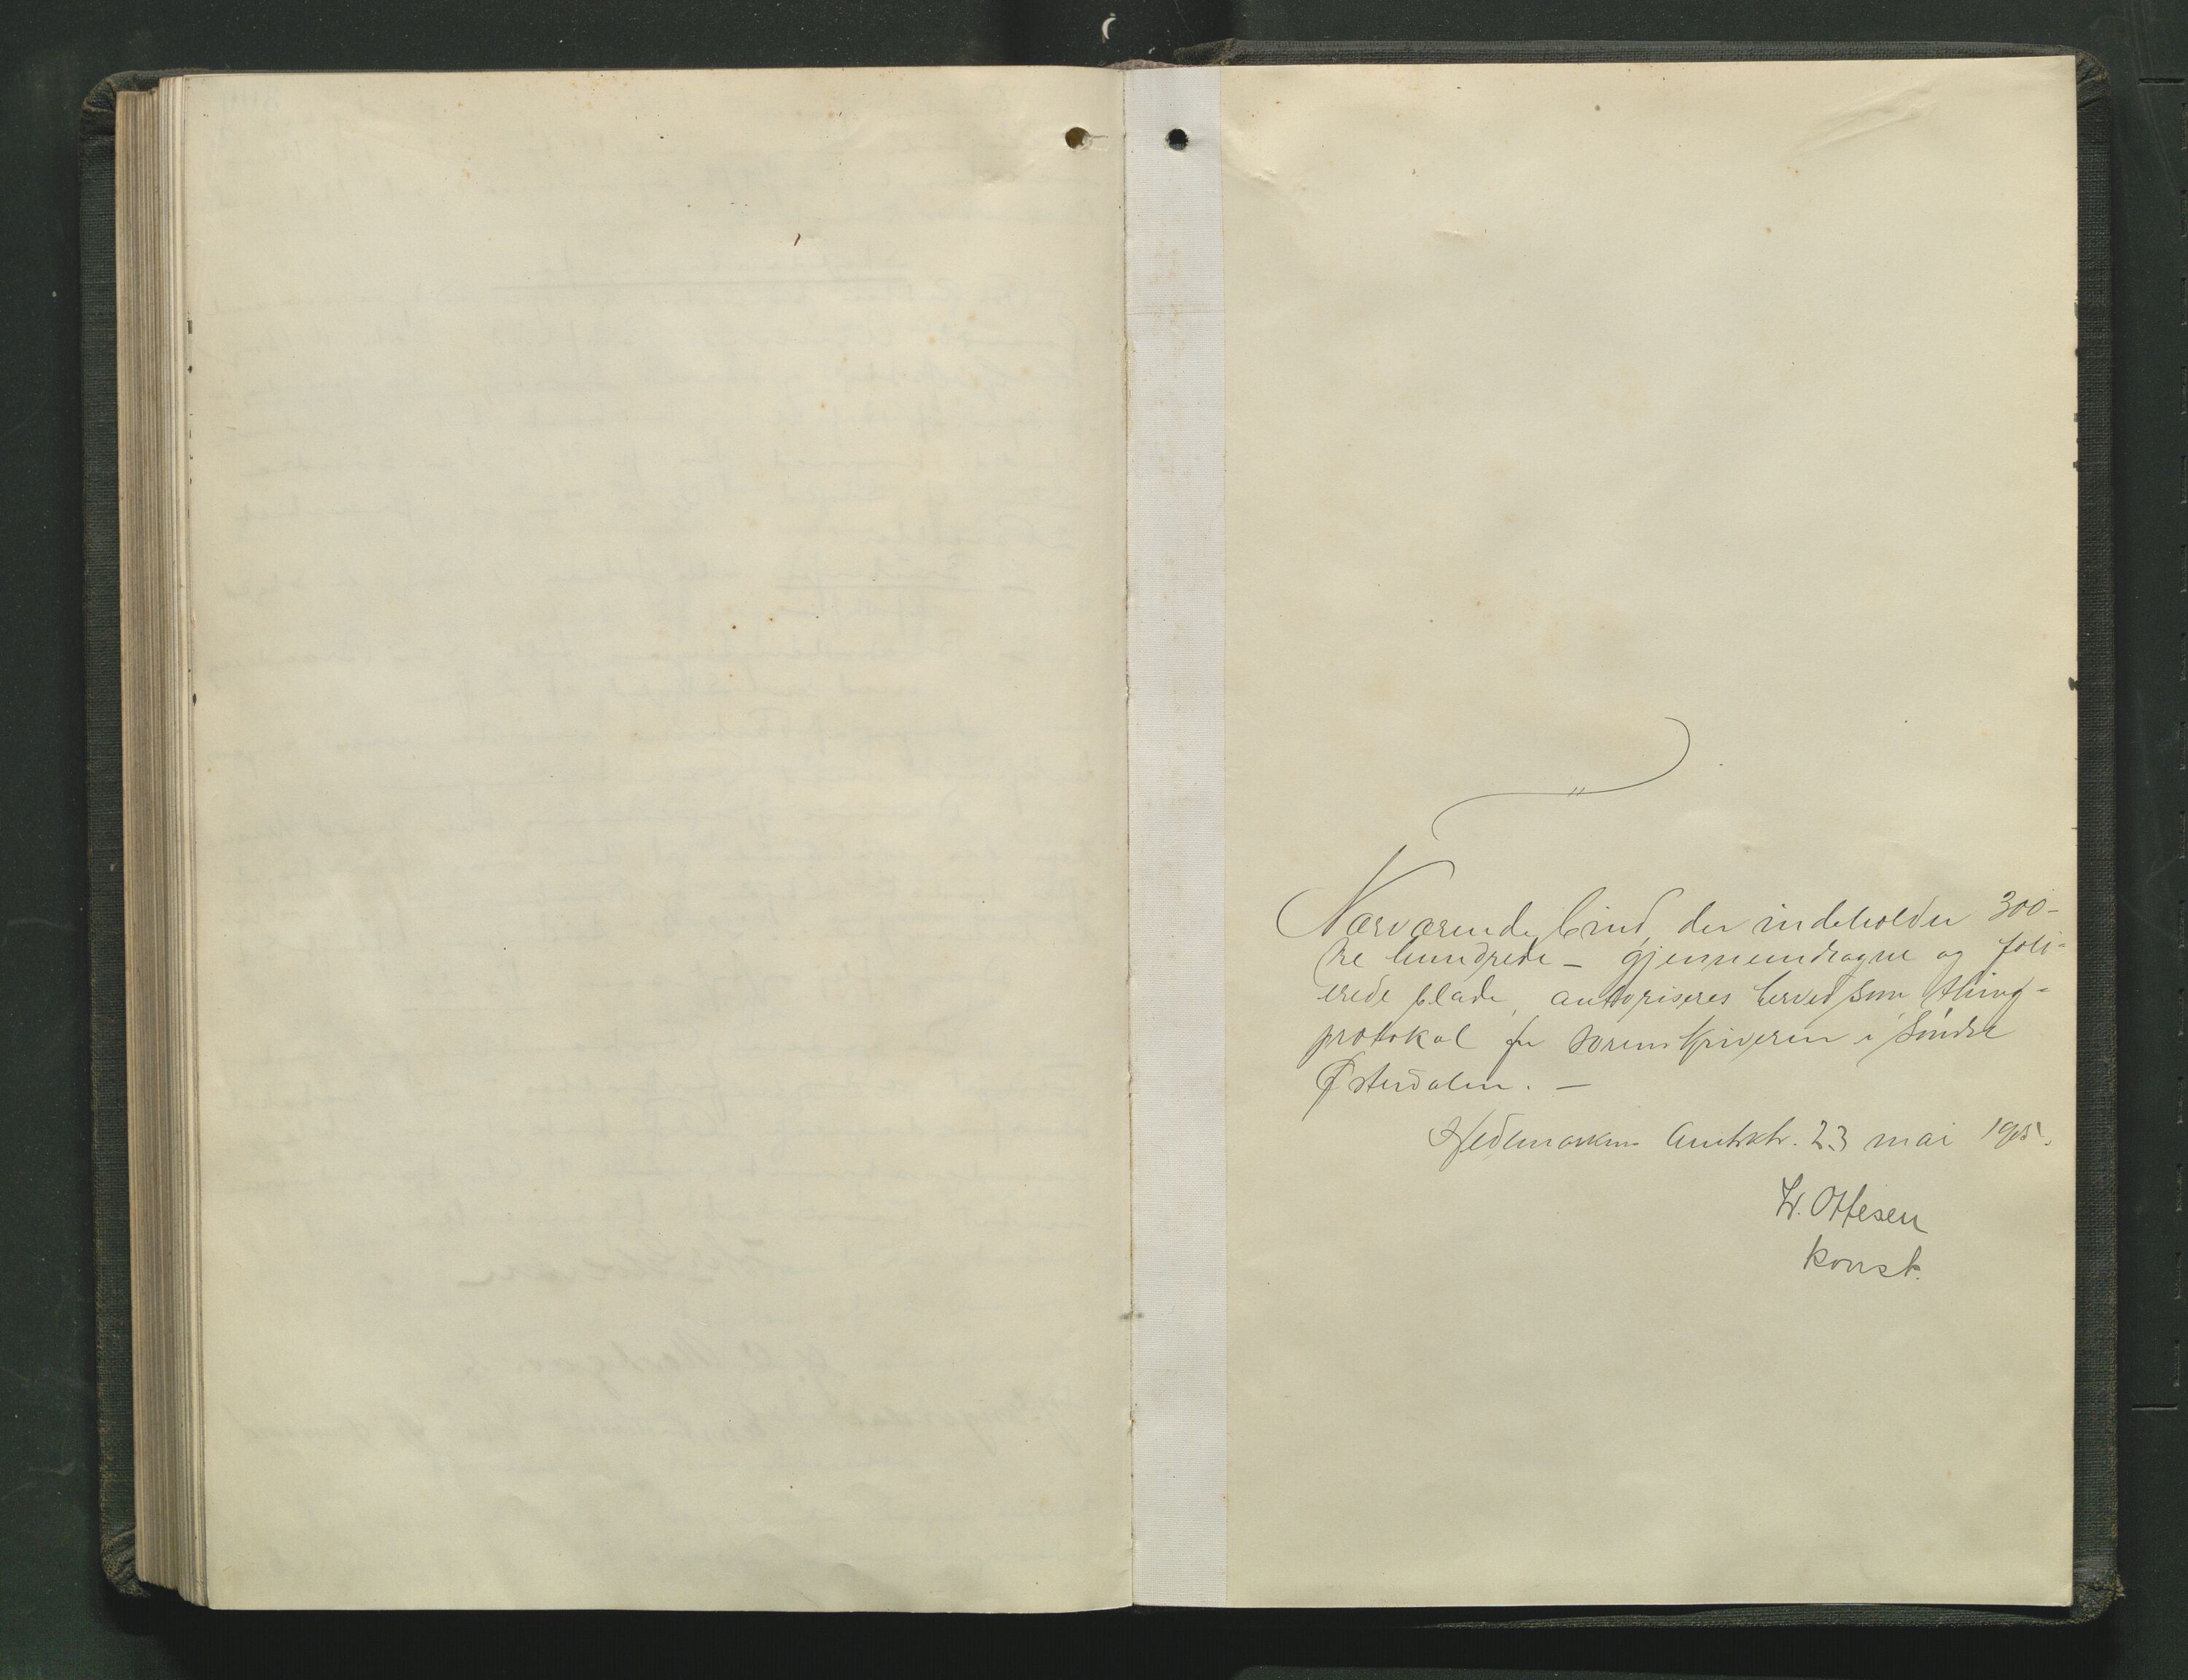 Nærværende bind, der indeholder 300-
tre hundrede - gjennemdragne og foli-
erede blade, autoriseres herved som thing-
protokol for sorenskriveren i Søndre
Østerdalen. -
Hedemarkens Amtsktr. 23 mai 1905.
W. Ottesen
konst.